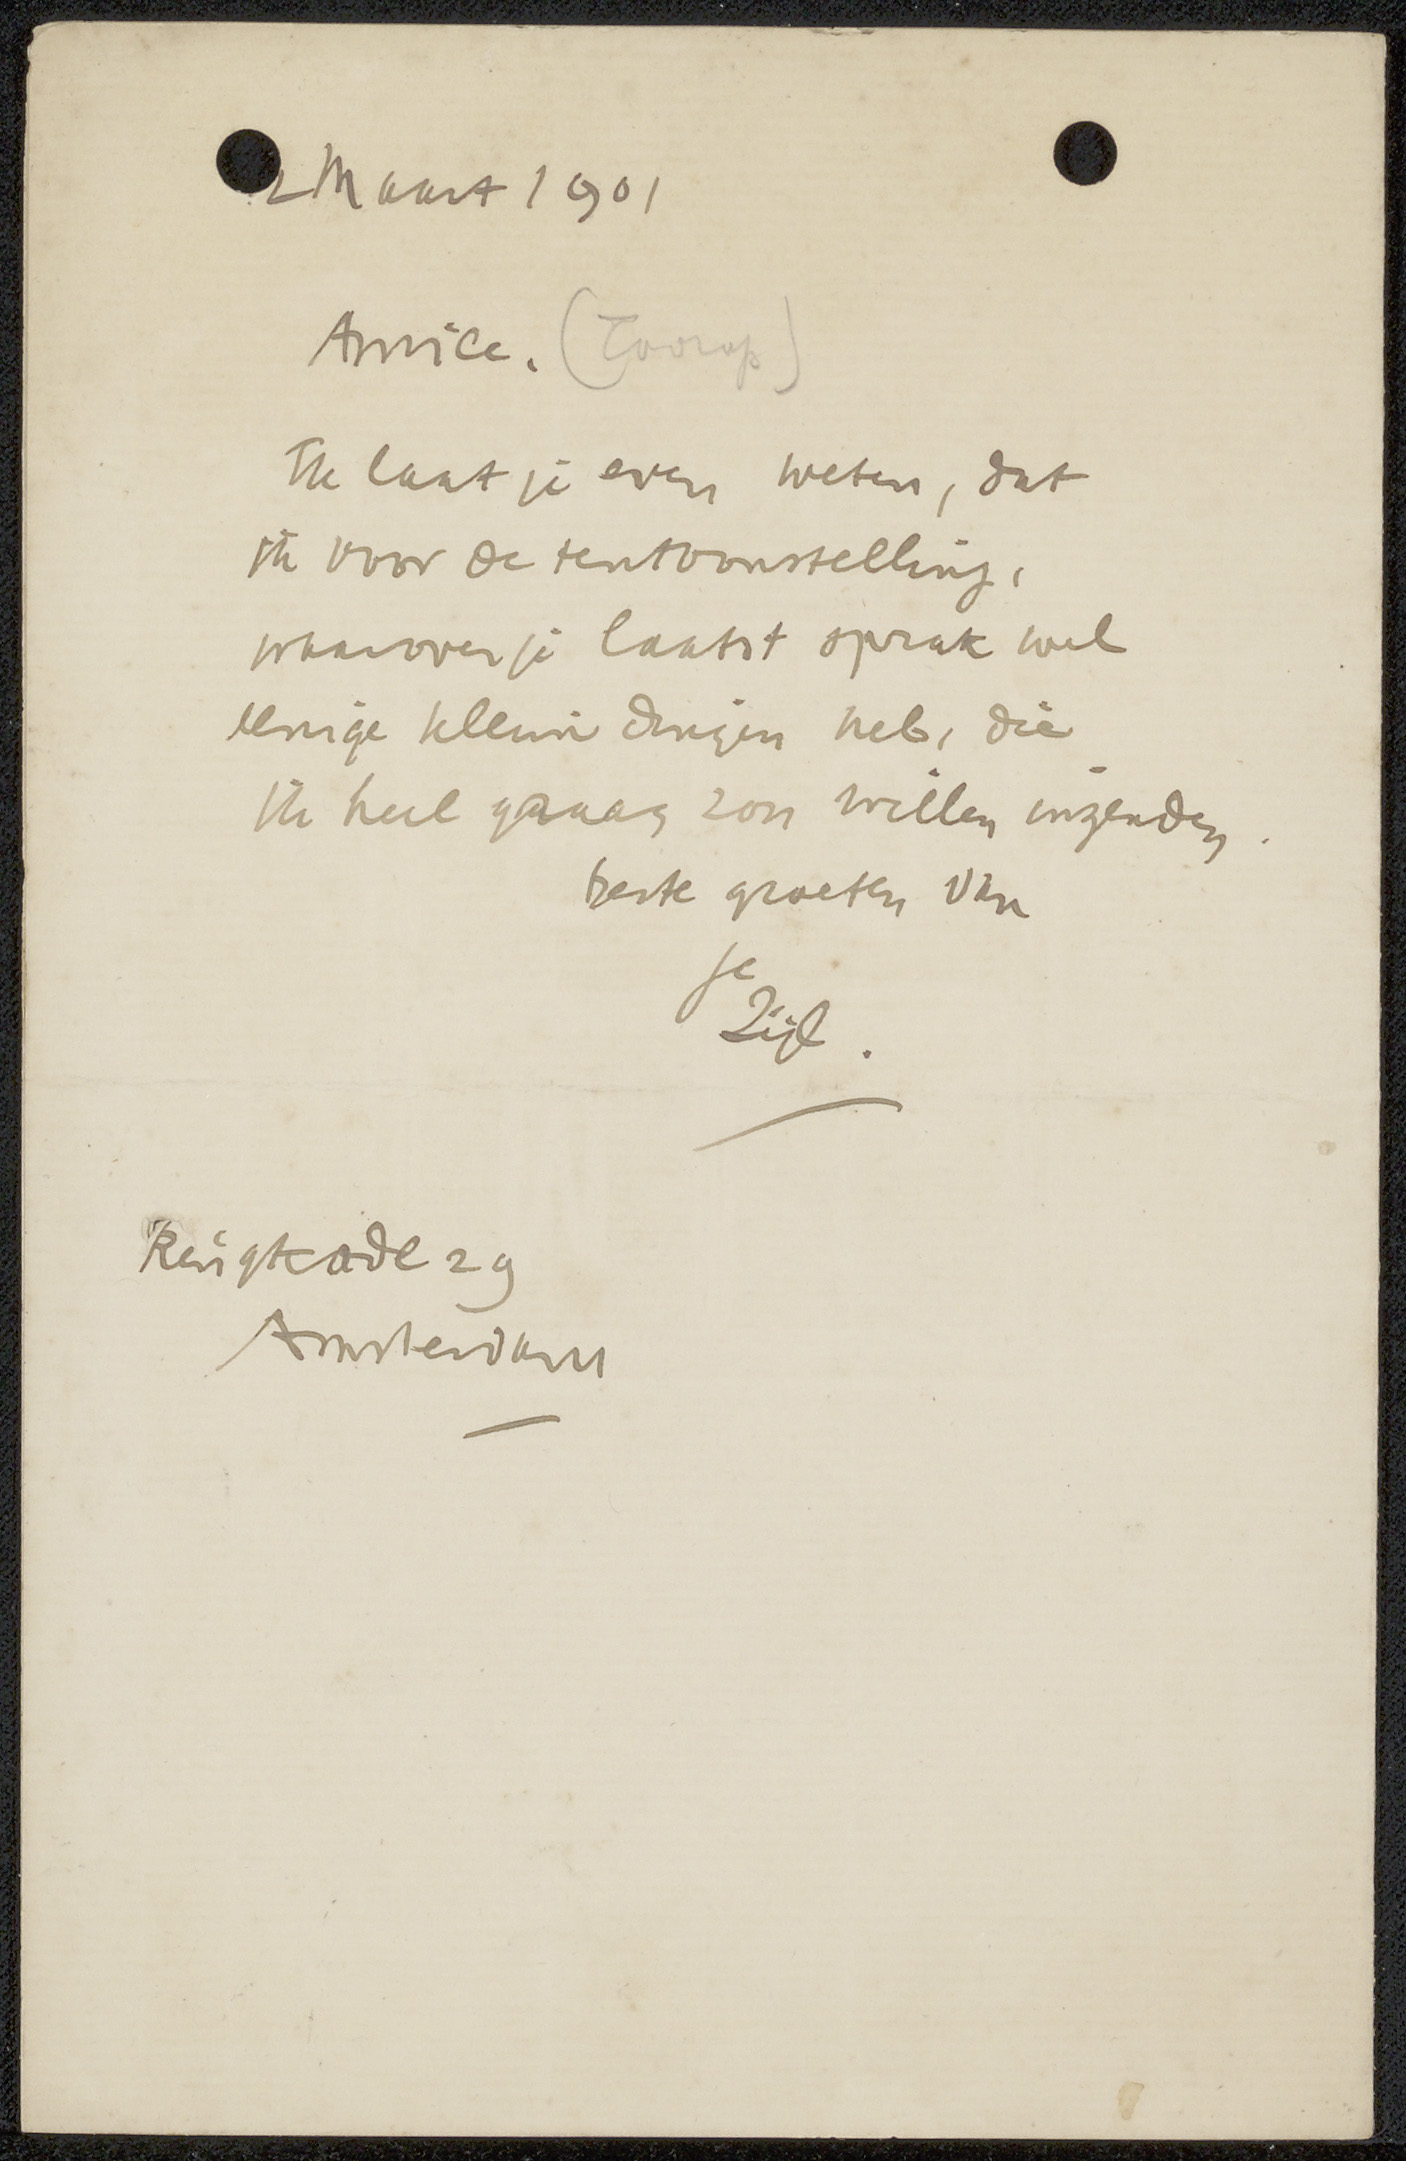 2 Maart 1901
Amice. (Toorop)
Ik laat je even weten, dat
ik voor de tentoonstelling,
waarover je laatst sprak wel
eenige kleine dingen heb, die
ik heel graag zou willen inzenden.
beste groeten van
je
Zijl.
Ringkade 29
Amsterdam